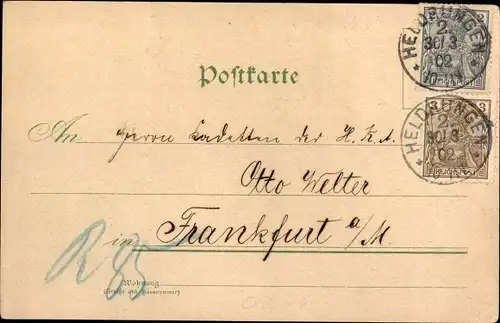 HELDRUNGEN
2.
30/3
02
HELDRUNGEN
2.
30/3
02
Postkarte
An Herrn Kadetten der H.K.A.
Otto Welter
in Frankfurt a/M.
R 85
Wohnung
(Straße und Hausnummer)